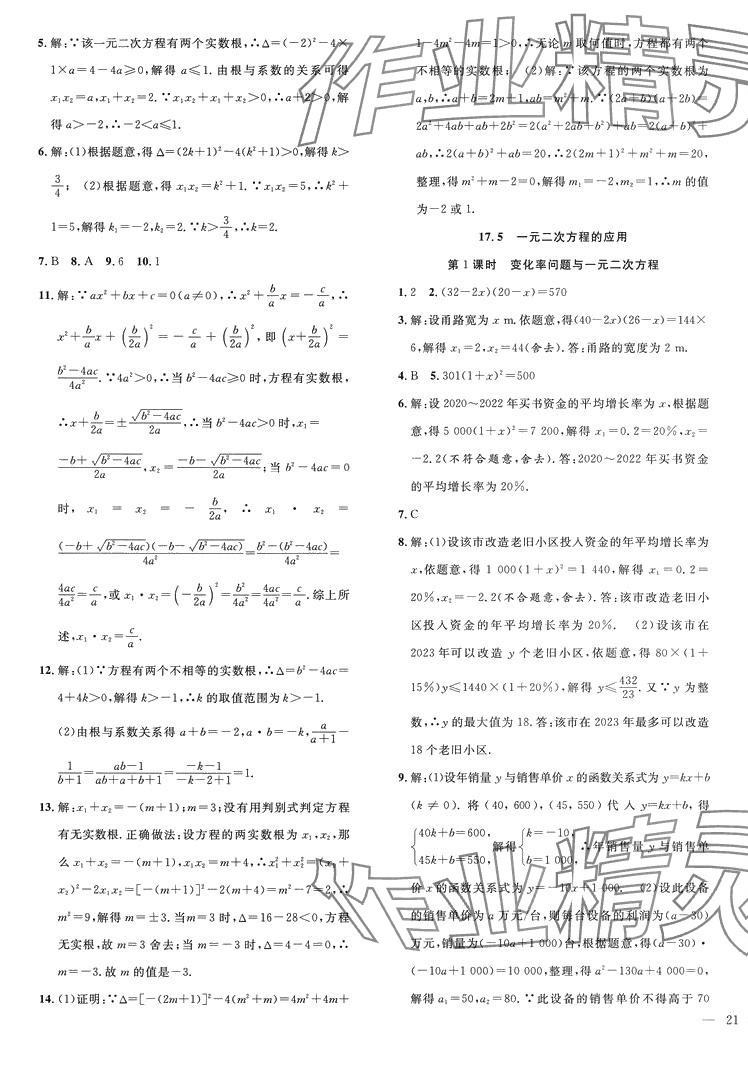 5.解:∵该一元二次方程有两个实数根,∴Δ=(-2)²-4×
1×a=4-4a≥0,解得 a≤1. 由根与系数的关系可得
x₁x₂=a,x₁+x₂=2.∵x₁x₂+x₁+x₂>0,∴a+2>0,解
得 a>-2,∴-2<a≤1.
6.解:(1)根据题意,得 Δ=(2k+1)²-4(k²+1)>0,解得 k>
3/4; (2)根据题意,得 x₁x₂=k²+1.∵x₁x₂=5,∴k²+
1=5,解得 k₁=-2,k₂=2.∵k>3/4,∴k=2.
7.B 8.A 9.6 10.1
11.解:∵ax²+bx+c=0(a≠0),∴x²+b/a x=-c/a,∴
x²+b/a x+(b/2a)²=-c/a+(b/2a)²,即(x+b/2a)²=
(b²-4ac)/4a².∵4a²>0,∴当 b²-4ac≥0 时,方程有实数根,
∴x+b/2a=±√(b²-4ac)/2a,∴当 b²-4ac>0 时,x₁=
(-b+√(b²-4ac))/2a,x₂=(-b-√(b²-4ac))/2a;当 b²-4ac=0
时, x₁ = x₂ = -b/2a, ∴ x₁ · x₂ =
(-b+√(b²-4ac))(-b-√(b²-4ac))/4a²=(b²-(b²-4ac))/4a²=
4ac/4a²=c/a,或 x₁·x₂=(-b/2a)²=b²/4a²=4ac/4a²=c/a.综上所
述,x₁·x₂=c/a.
12.解:(1)∵方程有两个不相等的实数根,∴Δ=b²-4ac=
4+4k>0,解得 k>-1,∴k 的取值范围为 k>-1.
(2)由根与系数关系得 a+b=-2,a·b=-k,a/(a+1)-
1/(b+1)=(ab-1)/(ab+a+b+1)=(-k-1)/(-k-2+1)=1.
13.解:x₁+x₂=-(m+1);m=3;没有用判别式判定方程
有无实数根.正确做法:设方程的两实数根为 x₁,x₂,那
么 x₁+x₂=-(m+1),x₁x₂=m+4,∴x₁²+x₂²=(x₁+
x₂)²-2x₁x₂=[-(m+1)]²-2(m+4)=m²-7=2,∴
m²=9,解得 m=±3.当 m=3 时,Δ=16-28<0,方程
无实根,故 m=3 舍去;当 m=-3 时,Δ=4-4=0,∴
m=-3.故 m 的值是-3.
14.(1)证明:∵Δ=[-(2m+1)]²-4(m²+m)=4m²+4m+
1-4m²-4m=1>0,∴无论 m 取何值时,方程都有两个
不相等的实数根; (2)解:∵该方程的两个实数根为
a,b,∴a+b=2m+1,ab=m²+m.∵(2a+b)(a+2b)=
2a²+4ab+ab+2b²=2(a²+2ab+b²)+ab=2(a+b)²+
ab,∴2(a+b)²+ab=20,∴2(2m+1)²+m²+m=20,
整理,得 m²+m-2=0,解得 m₁=-2,m₂=1,∴m 的值
为-2 或 1.
17.5 一元二次方程的应用
第 1 课时 变化率问题与一元二次方程
1.2 2.(32-2x)(20-x)=570
3.解:设甬路宽为 x m.依题意,得(40-2x)(26-x)=144×
6,解得 x₁=2,x₂=44(舍去).答:甬路的宽度为 2 m.
4.B 5.301(1+x)²=500
6.解:设 2020~2022 年买书资金的平均增长率为 x,根据题
意,得 5 000(1+x)²=7 200,解得 x₁=0.2=20%,x₂=
-2.2(不符合题意,舍去).答:2020~2022 年买书资金
的平均增长率为 20%.
7.C
8.解:(1)设该市改造老旧小区投入资金的年平均增长率为
x,依题意,得 1 000(1+x)²=1 440,解得 x₁=0.2=
20%,x₂=-2.2(不合题意,舍去).答:该市改造老旧小
区投入资金的年平均增长率为 20%. (2)设该市在
2023 年可以改造 y 个老旧小区,依题意,得 80×(1+
15%)y≤1440×(1+20%),解得 y≤432/23.又∵y 为整
数,∴y 的最大值为 18.答:该市在 2023 年最多可以改造
18 个老旧小区.
9.解:(1)设年销量 y 与销售单价 x 的函数关系式为 y=kx+b
(k≠0). 将(40,600),(45,550)代入 y=kx+b,得
{40k+b=600, 45k+b=550, 解得{k=-10, b=1 000, ∴年销售量 y 与销售单
价 x 的函数关系式为 y=-10x+1 000. (2)设此设备
的销售单价为 a 万元/台,则每台设备的利润为(a-30)
万元,销量为(-10a+1 000)台,根据题意,得(a-30)·
(-10a+1 000)=10 000,整理,得 a²-130a+4 000=0,
解得 a₁=50,a₂=80.∵此设备的销售单价不得高于 70
— 21
作业精灵
作业精灵